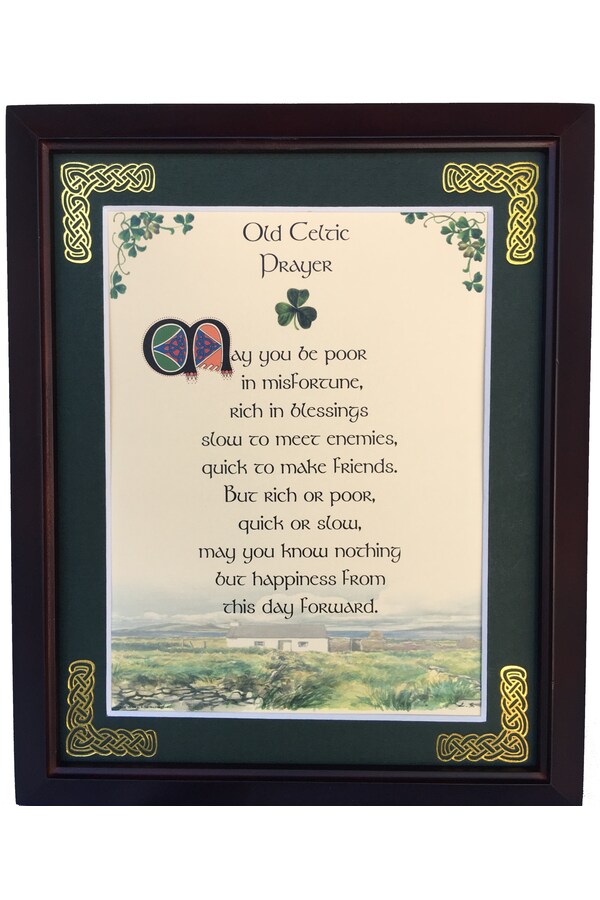 Old Celtic
Prayer
May you be poor
in misfortune,
rich in blessings
slow to meet enemies,
quick to make friends.
But rich or poor,
quick or slow,
may you know nothing
but happiness from
this day forward.